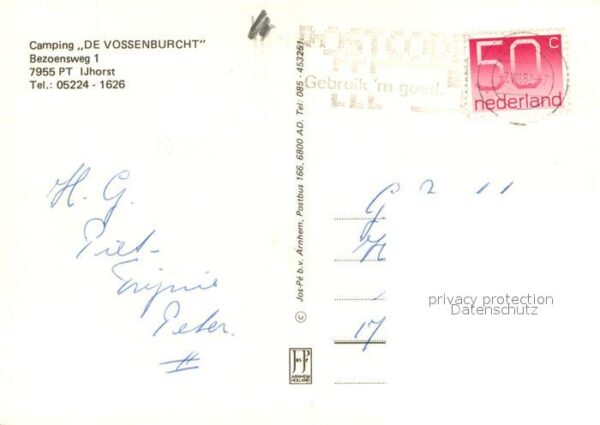 Camping „DE VOSSENBURCHT"
Bezoensweg 1
7955 PT IJhorst
Tel.: 05224 - 1626
H. G.
Piet-
Peter.
II
© Jos-Pé b.v. Arnhem, Postbus 166, 6800 AD. Tel: 085 - 453251
ARNHEM
HOLLAND
POSTCODE
Gebruik 'm goed.
50 c
nederland
G
H
17
privacy protection
Datenschutz